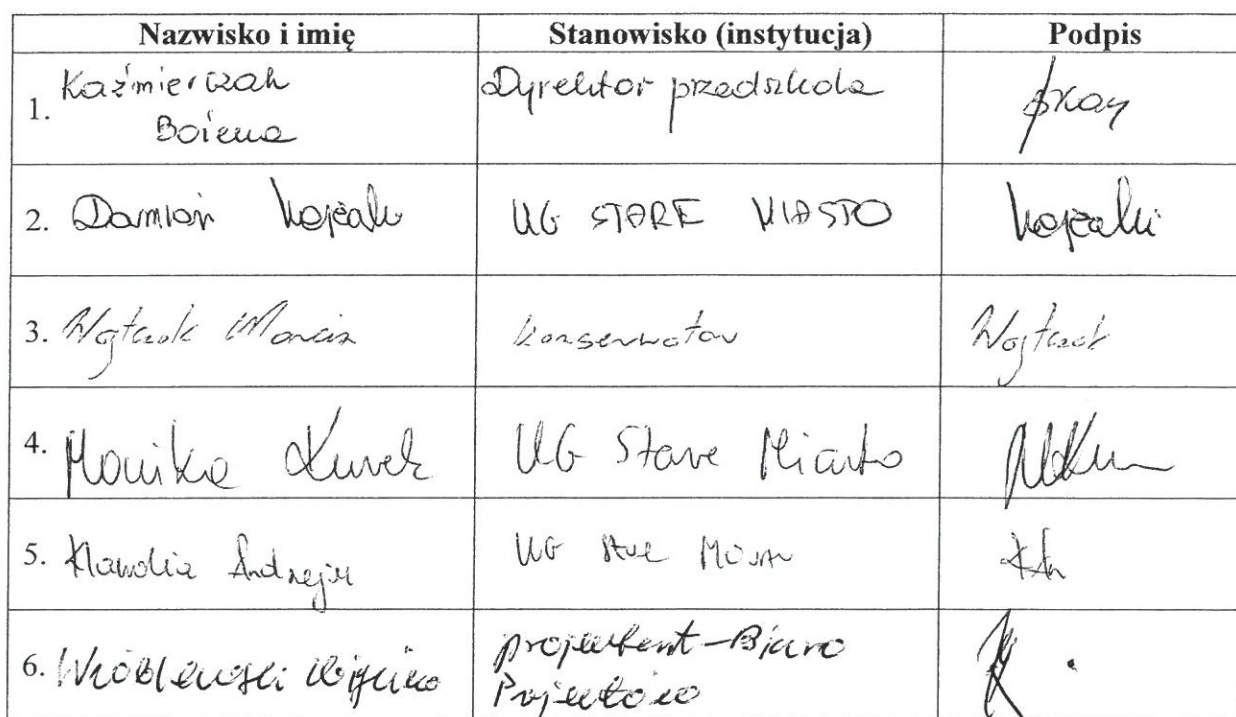 Nazwisko i imię Stanowisko (instytucja) Podpis
1. Kaźmierczak Dyrektor przedszkola
Bożena
2. Damian UG STARE MIASTO
3. Wojtczak Marcin konserwator Wojtczak
4. Monika Kurek UG Stare Miasto
5. Klaudia Andrzej UG Stare Miasto
6. Wróblewski projektant-Biuro
Projektów